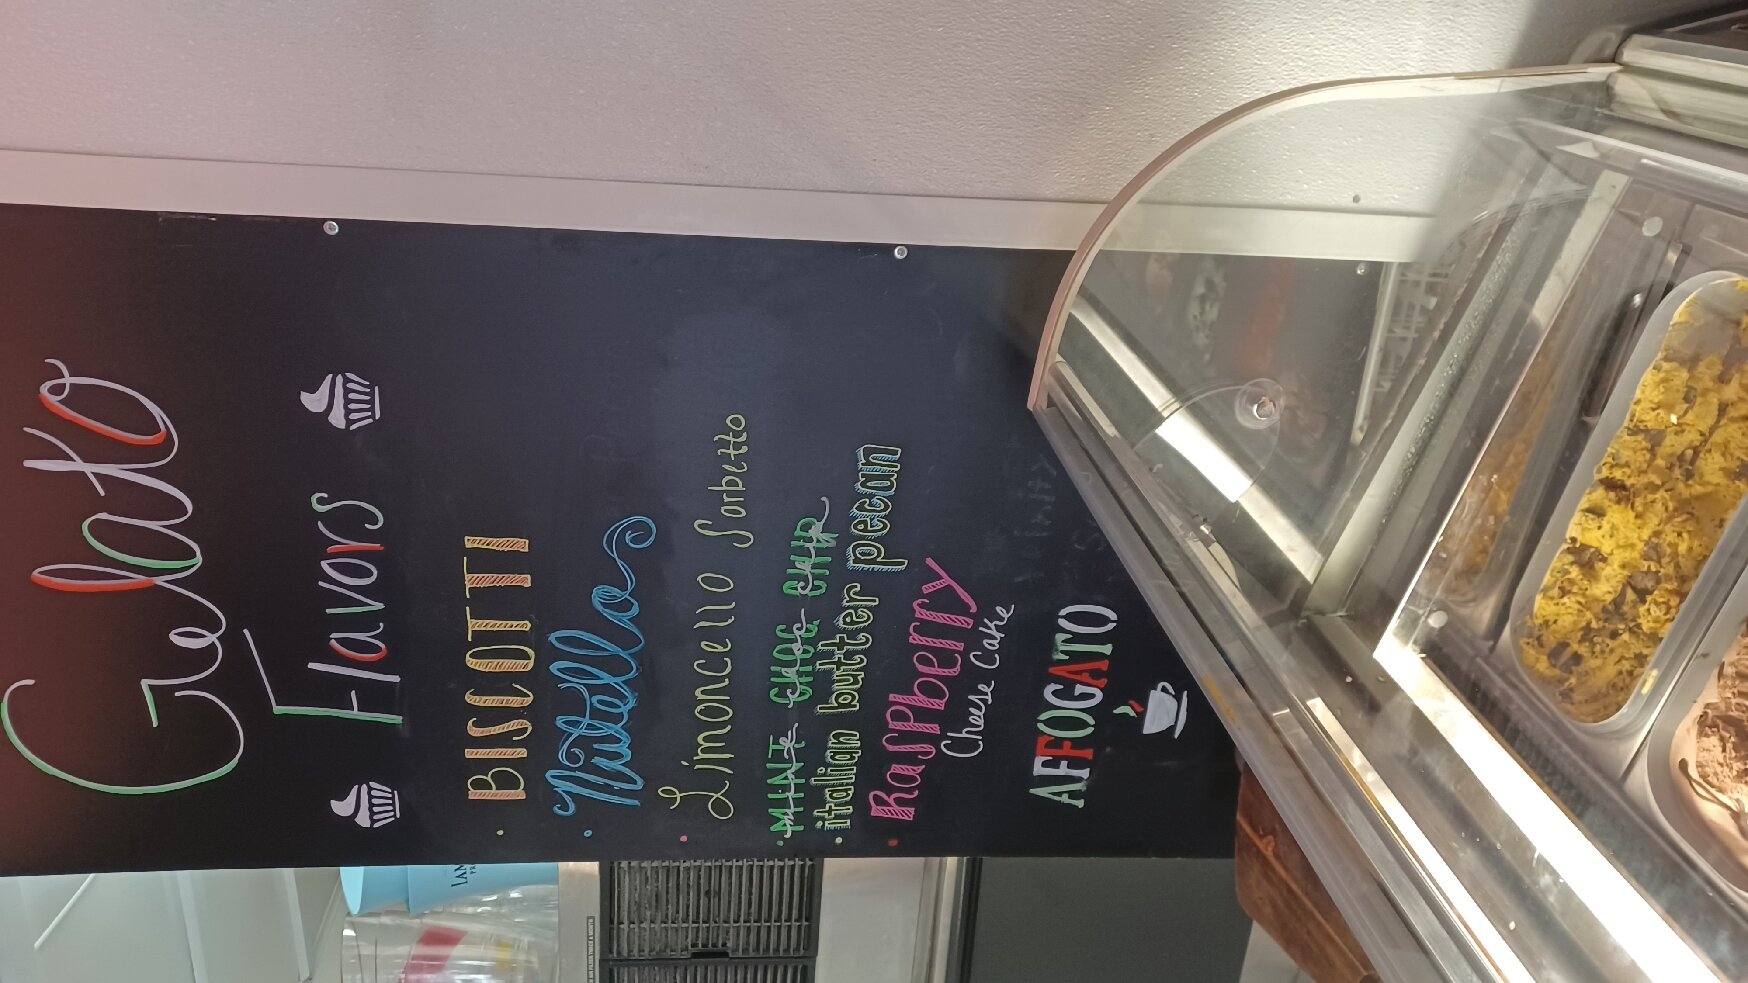 Gelato
Flavors
• BISCOTTI
• Nutella
• Limoncello Sorbetto
• MINT CHOC CHIP
• italian butter pecan
• Raspberry
Cheese Cake
AFFOGATO